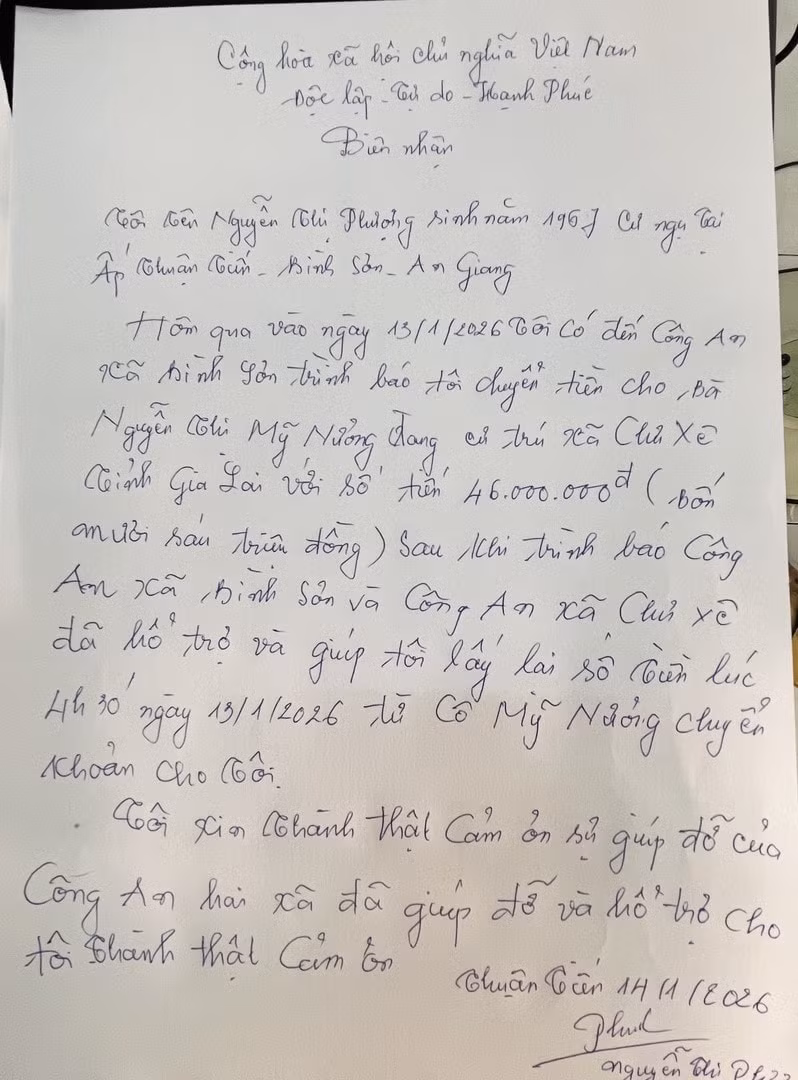 Cộng hòa xã hội chủ nghĩa Việt Nam
Độc lập - Tự do - Hạnh Phúc
Biên nhận
Tôi tên Nguyễn Thị Phượng sinh năm 1967 cư ngụ tại
Ấp Thuận Tiến - Bình Sơn - An Giang
Hôm qua vào ngày 13/1/2026 tôi có đến Công An
xã Bình Sơn trình báo tôi chuyển tiền cho Bà
Nguyễn Thị Mỹ Nương đang cư trú xã Chư Xê
Tỉnh Gia Lai với số tiền 46.000.000đ (Bốn
mươi sáu triệu đồng) Sau khi trình báo Công
An xã Bình Sơn và Công An xã Chư Xê
đã hổ trợ và giúp tôi lấy lại số tiền lúc
4h 30' ngày 13/1/2026 từ Cô Mỹ Nương chuyển
khoản cho tôi.
Tôi xin thành thật cảm ơn sự giúp đỡ của
Công An hai xã đã giúp đỡ và hổ trợ cho
tôi thành thật cảm ơn
Thuận Tiến 14/1/2026
Nguyễn Thị